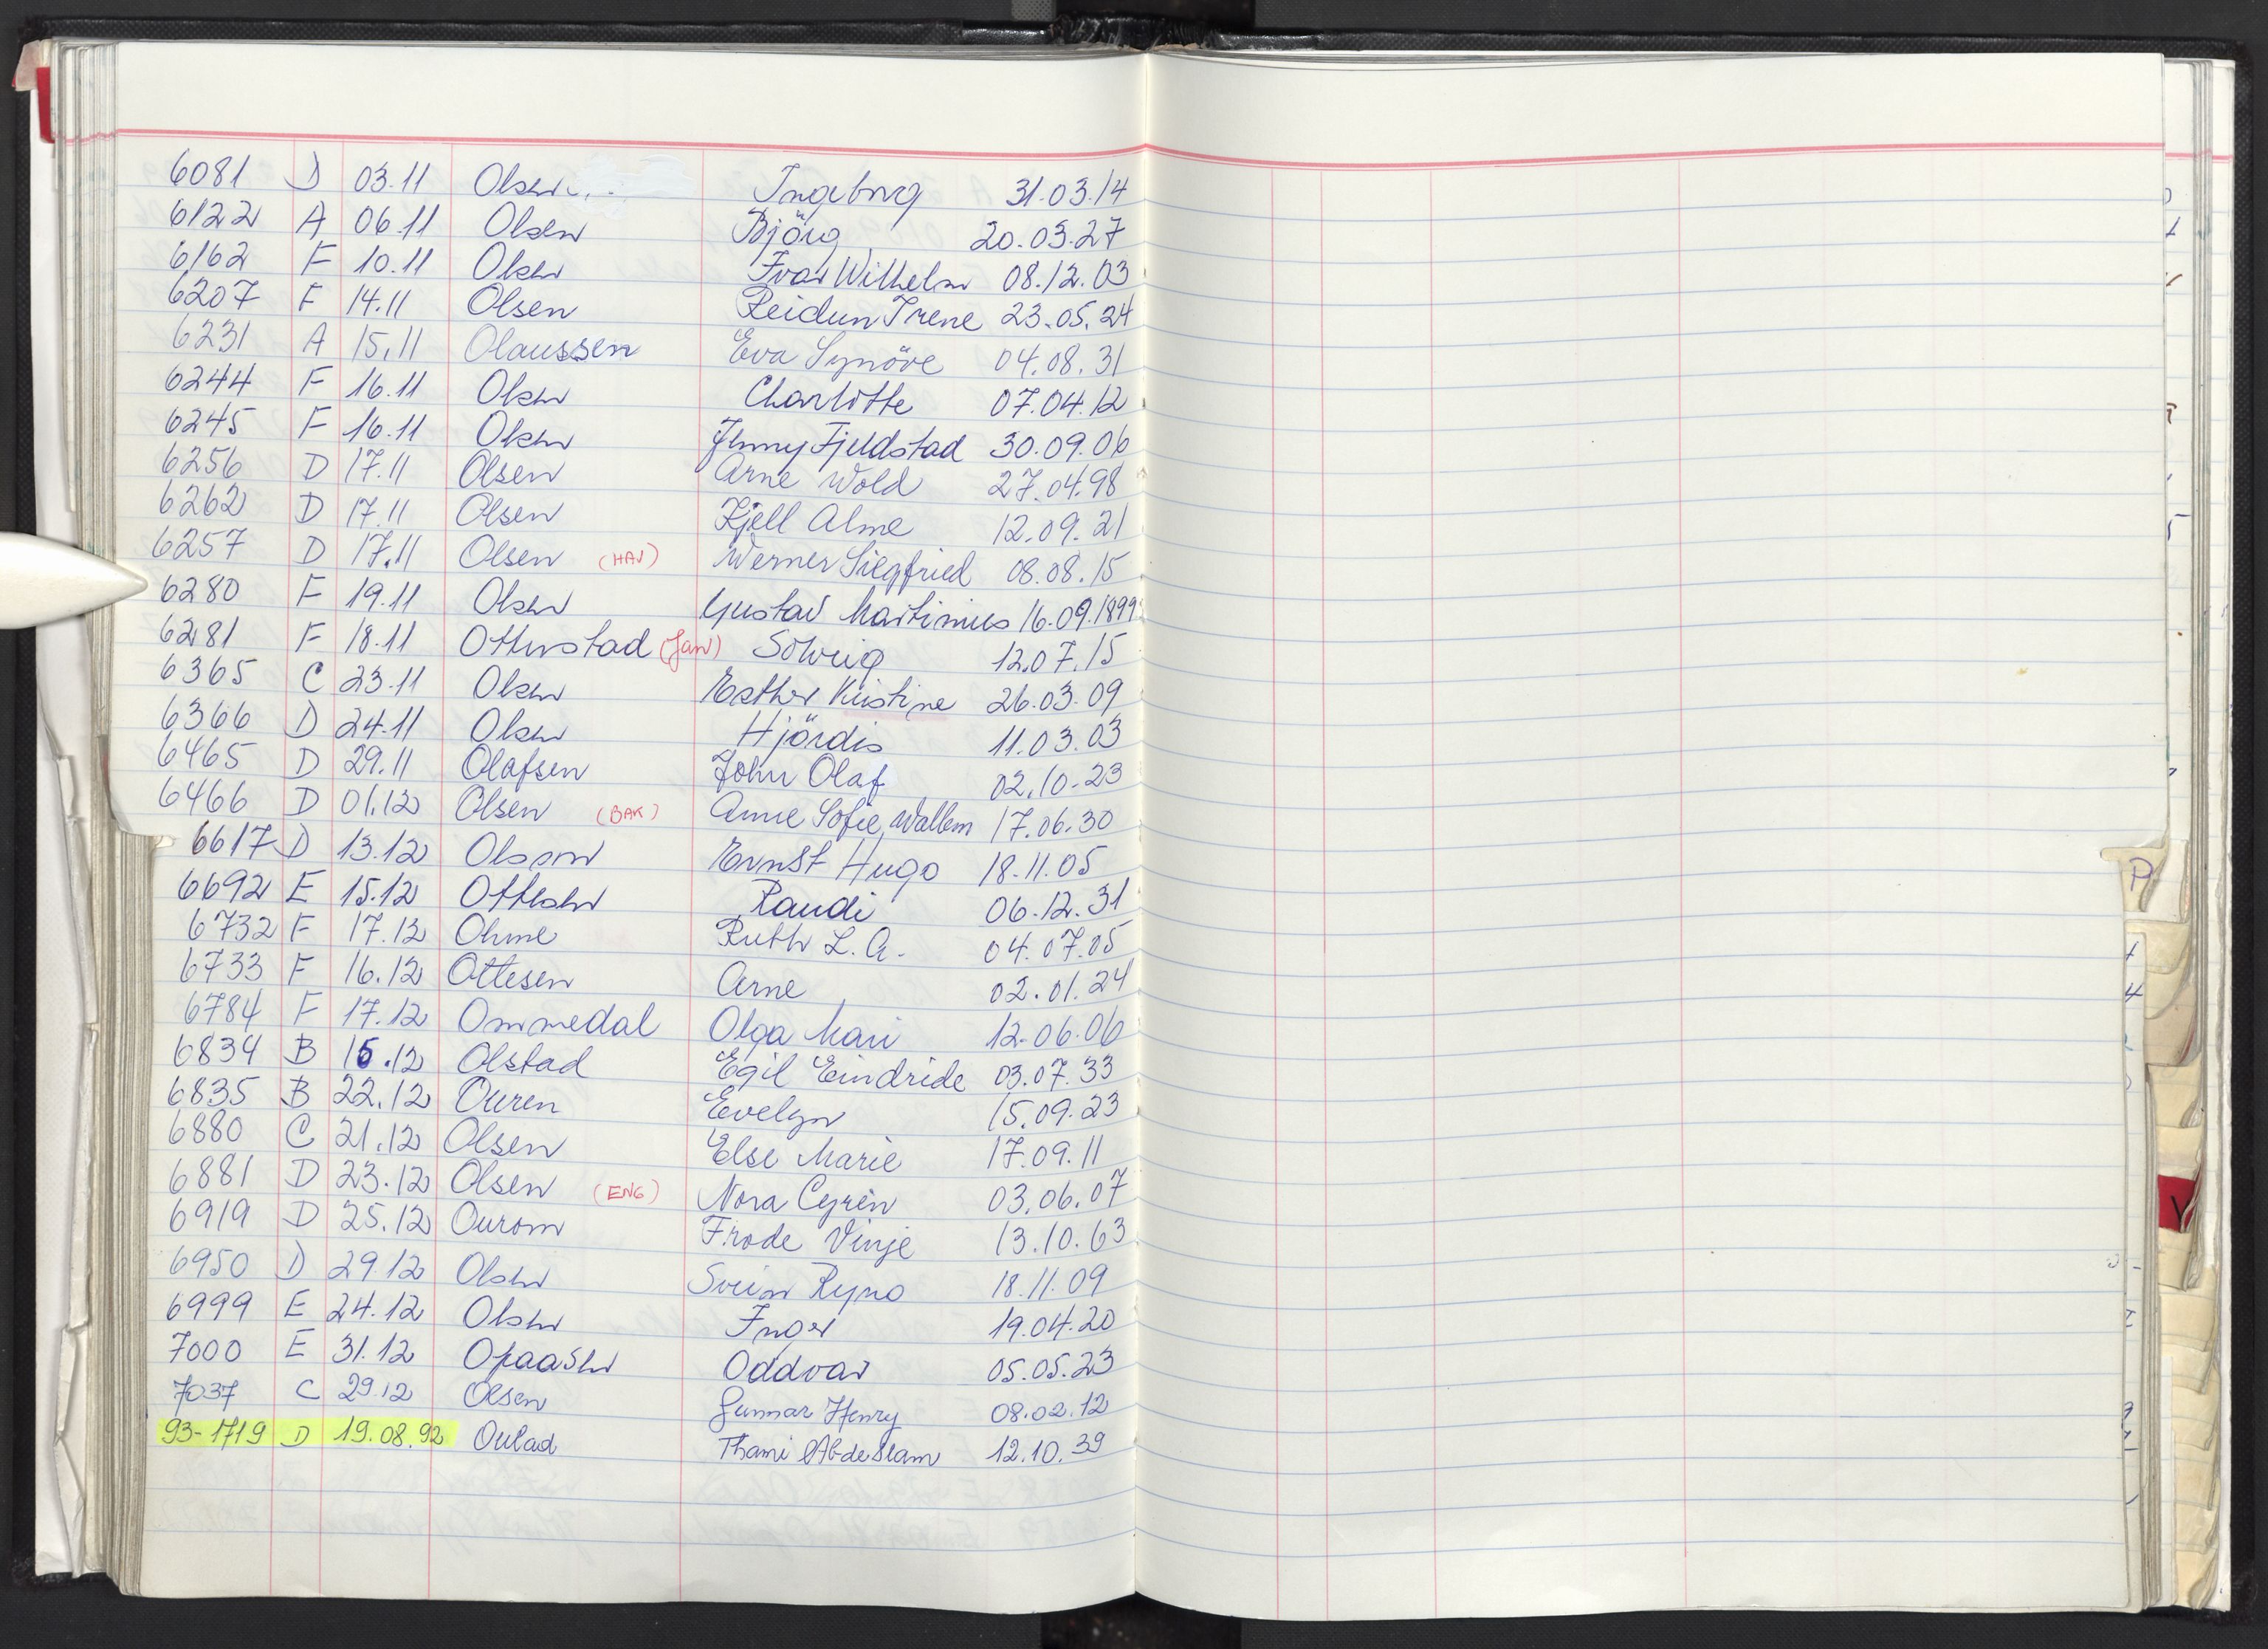 6081 D 03.11 Olsen Ingeborg 31.03.14
6122 A 06.11 Olsen Björg 20.03.27
6162 F 10.11 Olsen Ivar Wilhelm 08.12.03
6207 F 14.11 Olsen Reidun Irene 23.05.24
6231 A 15.11 Olaussen Eva Synöve 04.08.31
6244 F 16.11 Olsen Charlotte 07.04.12
6245 F 16.11 Olsen Jenny Fjeldstad 30.09.06
6256 D 17.11 Olsen Arne Wold 27.04.98
6262 D 17.11 Olsen Kjell Alme 12.09.21
6257 D 17.11 Olsen (HAV) Werner Siegfried 08.08.15
6280 F 19.11 Olsen Gustav Martinius 16.09.1899
6281 F 18.11 Otterstad (Jan) Solveig 12.07.15
6365 C 23.11 Olsen Esther Kristine 26.03.09
6366 D 24.11 Olsen Hjördis 11.03.03
6465 D 29.11 Olafsen John Olaf 02.10.23
6466 D 01.12 Olsen (BAK) Anne Sofie Wallem 17.06.30
6617 D 13.12 Olsson Ernst Hugo 18.11.05
6692 E 15.12 Ottesen Randi 06.12.31
6732 F 17.12 Ohme Ruth L. A. 04.07.05
6733 F 16.12 Ottesen Arne 02.01.24
6784 F 17.12 Ommedal Olga Mari 12.06.06
6834 B 16.12 Olstad Egil Eindride 03.07.33
6835 B 22.12 Ouren Evelyn 15.09.23
6880 C 21.12 Olsen Else Marie 17.09.11
6881 D 23.12 Olsen (ENG) Nora Cyrén 03.06.07
6919 D 25.12 Ourom Frode Vinje 13.10.63
6950 D 29.12 Olsen Svein Ryno 18.11.09
6999 E 24.12 Olsen Inger 19.04.20
7000 E 31.12 Opaasen Oddvar 05.05.23
7037 C 29.12 Olsen Gunnar Henry 08.02.12
93-1719 D 19.08.92 Oulad Thami Abdeslam 12.10.39
P